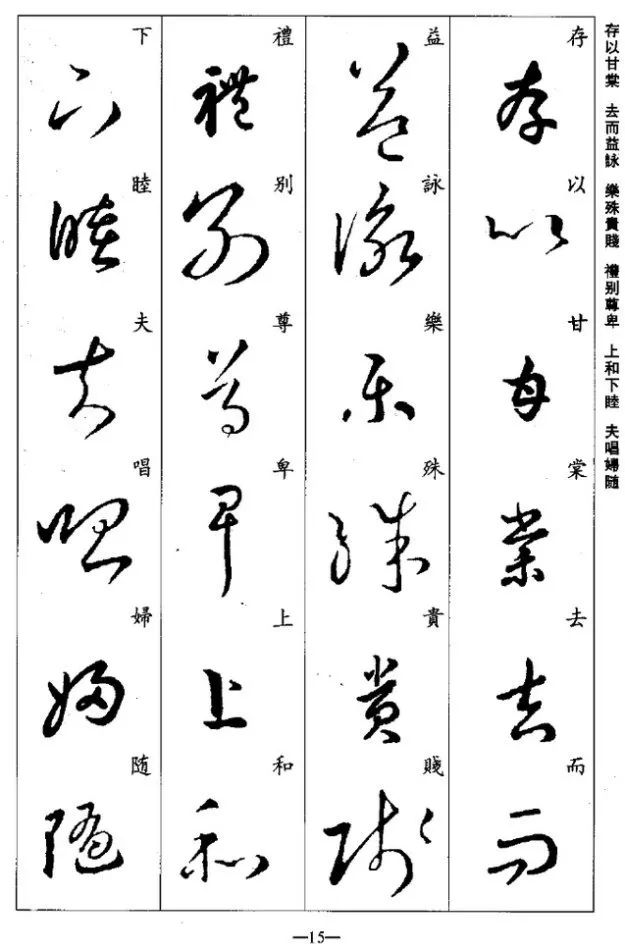 存以甘棠 去而益詠 樂殊貴賤 禮别尊卑 上和下睦 夫唱婦随
存以甘棠去而
益詠樂殊貴賤
禮别尊卑上和
下睦夫唱婦随
—15—